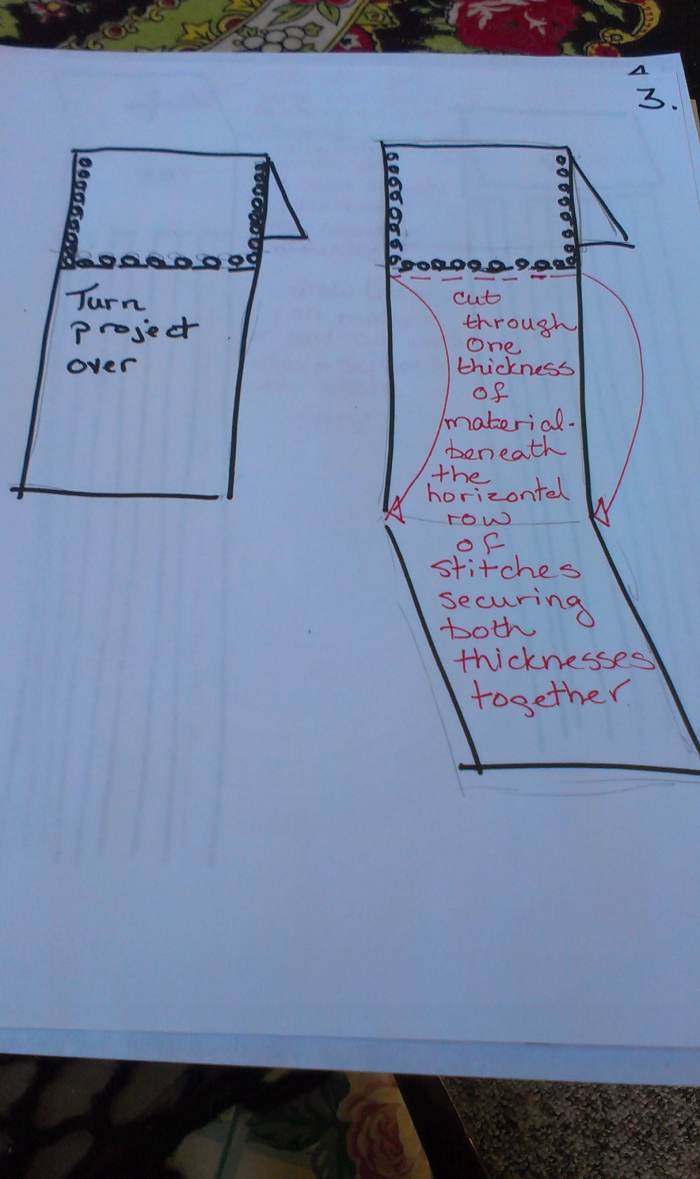 3.
Turn
project
over
cut
through
one
thickness
of
material-
beneath
the
horizontel
row
of
stitches
securing
both
thicknesses
together